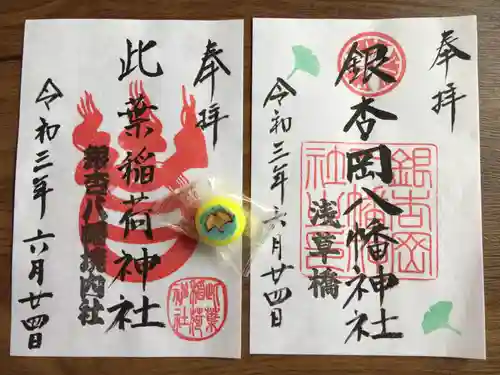 奉拝
銀杏岡八幡神社
浅草橋
令和三年六月廿四日
銀杏岡八幡神社
奉拝
此葉稲荷神社
銀杏八幡境内社
令和三年六月廿四日
此葉稲荷神社